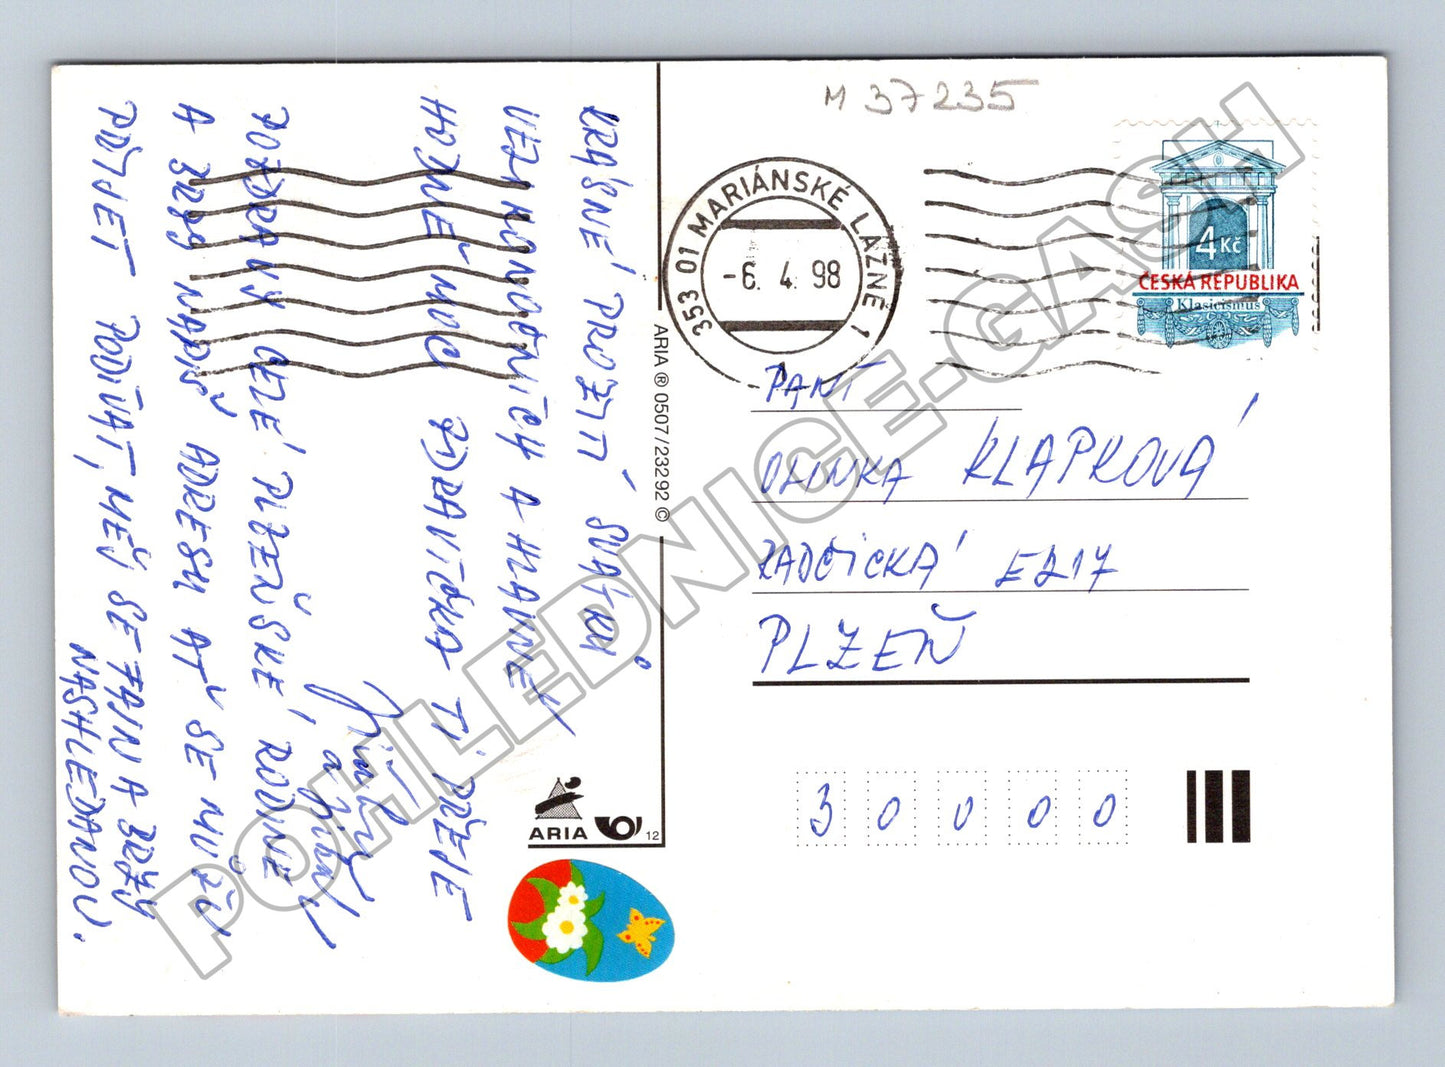 M 37235
353 01 MARIÁNSKÉ LÁZNĚ 1
-6. 4. 98
4 Kč
ČESKÁ REPUBLIKA
Klasicismus
KRÁSNÉ PROŽITÍ SVÁTKŮ
VELIKONOČNÍCH A HLAVNĚ
HODNĚ MOC ZDRAVÍČKA TI PŘEJE
POZDRAVY CELÉ PLZEŇSKÉ RODINĚ
A BRZY NAPIŠ ADRESU AŤ SE MŮŽU
PŘIJET PODÍVAT, MĚJ SE FAJN A BRZY
NASHLEDANOU.
ARIA ® 0507/23292 ©
ARIA
12
PANÍ
OLINKA KLAPKOVÁ
RADČICKÁ E217
PLZEŇ
3 0 0 0 0
POHLEDNICE-GASH